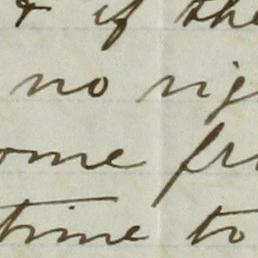 & if the
no rig
ome fr
time to